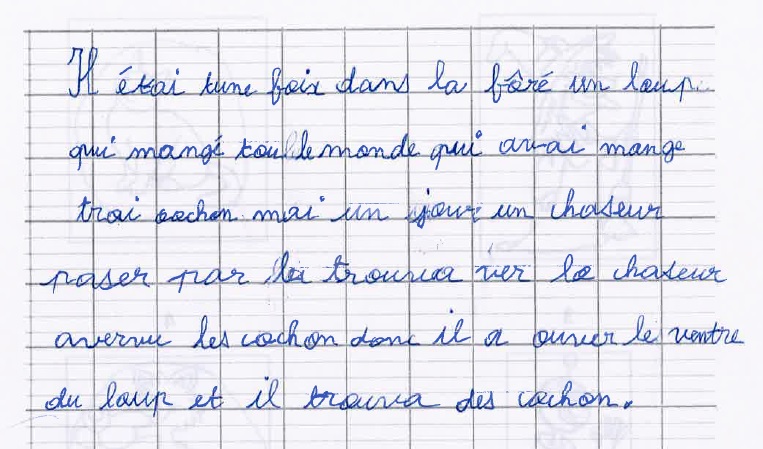 Il étai tune foix dans la fôré un loup.
qui mangé toul le monde qui avai mange
trai cochon mai un jour un chaseur
paser par la trouva ver le chaseur
avervu les cochon donc il a ouver le ventre
du loup et il trouva des cochon.